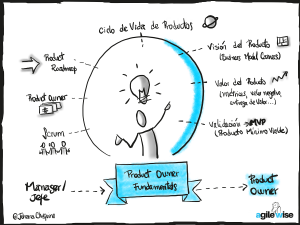 Ciclo de Vida de Productos
Product
Roadmap
Product Owner
Scrum
Visión del Producto
(Business Model Canvas)
Valor del Producto
(métricas, valor negocio,
entrega de valor...)
Validación → MVP
(Producto Mínimo Viable)
Product Owner
Fundamentals
Manager/
Jefe
Product
Owner
agilewise